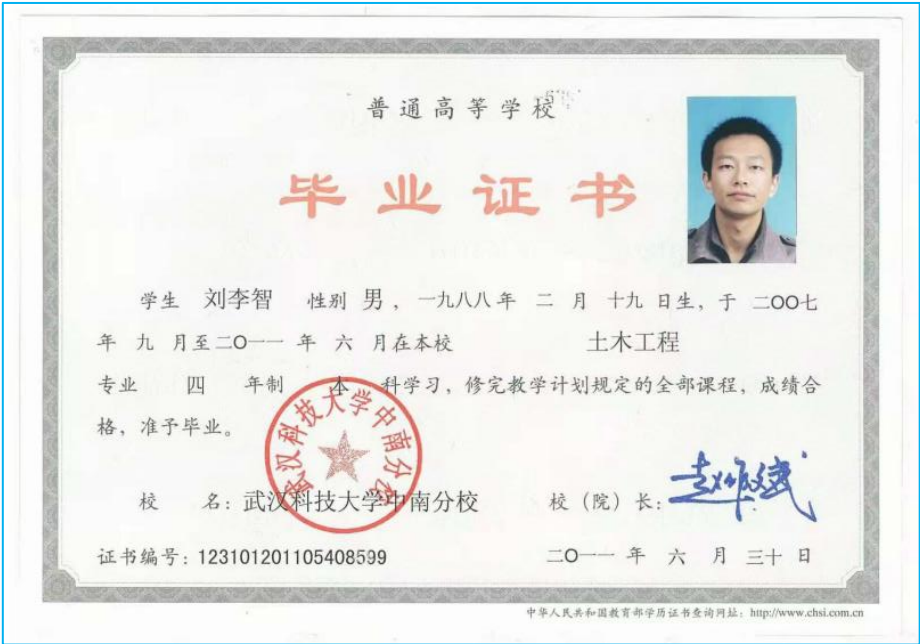 普通高等学校
毕业证书
学生 刘李智 性别 男，一九八八年 二 月 十九 日生，于 二〇〇七
年 九 月至二〇一一 年 六 月在本校 土木工程
专业 四 年制 本 科学习，修完教学计划规定的全部课程，成绩合
格，准予毕业。
武汉科技大学中南分校
校 名：武汉科技大学中南分校 校（院）长：
证书编号：123101201105408599 二〇一一 年 六 月 三十 日
中华人民共和国教育部学历证书查询网址：http://www.chsi.com.cn